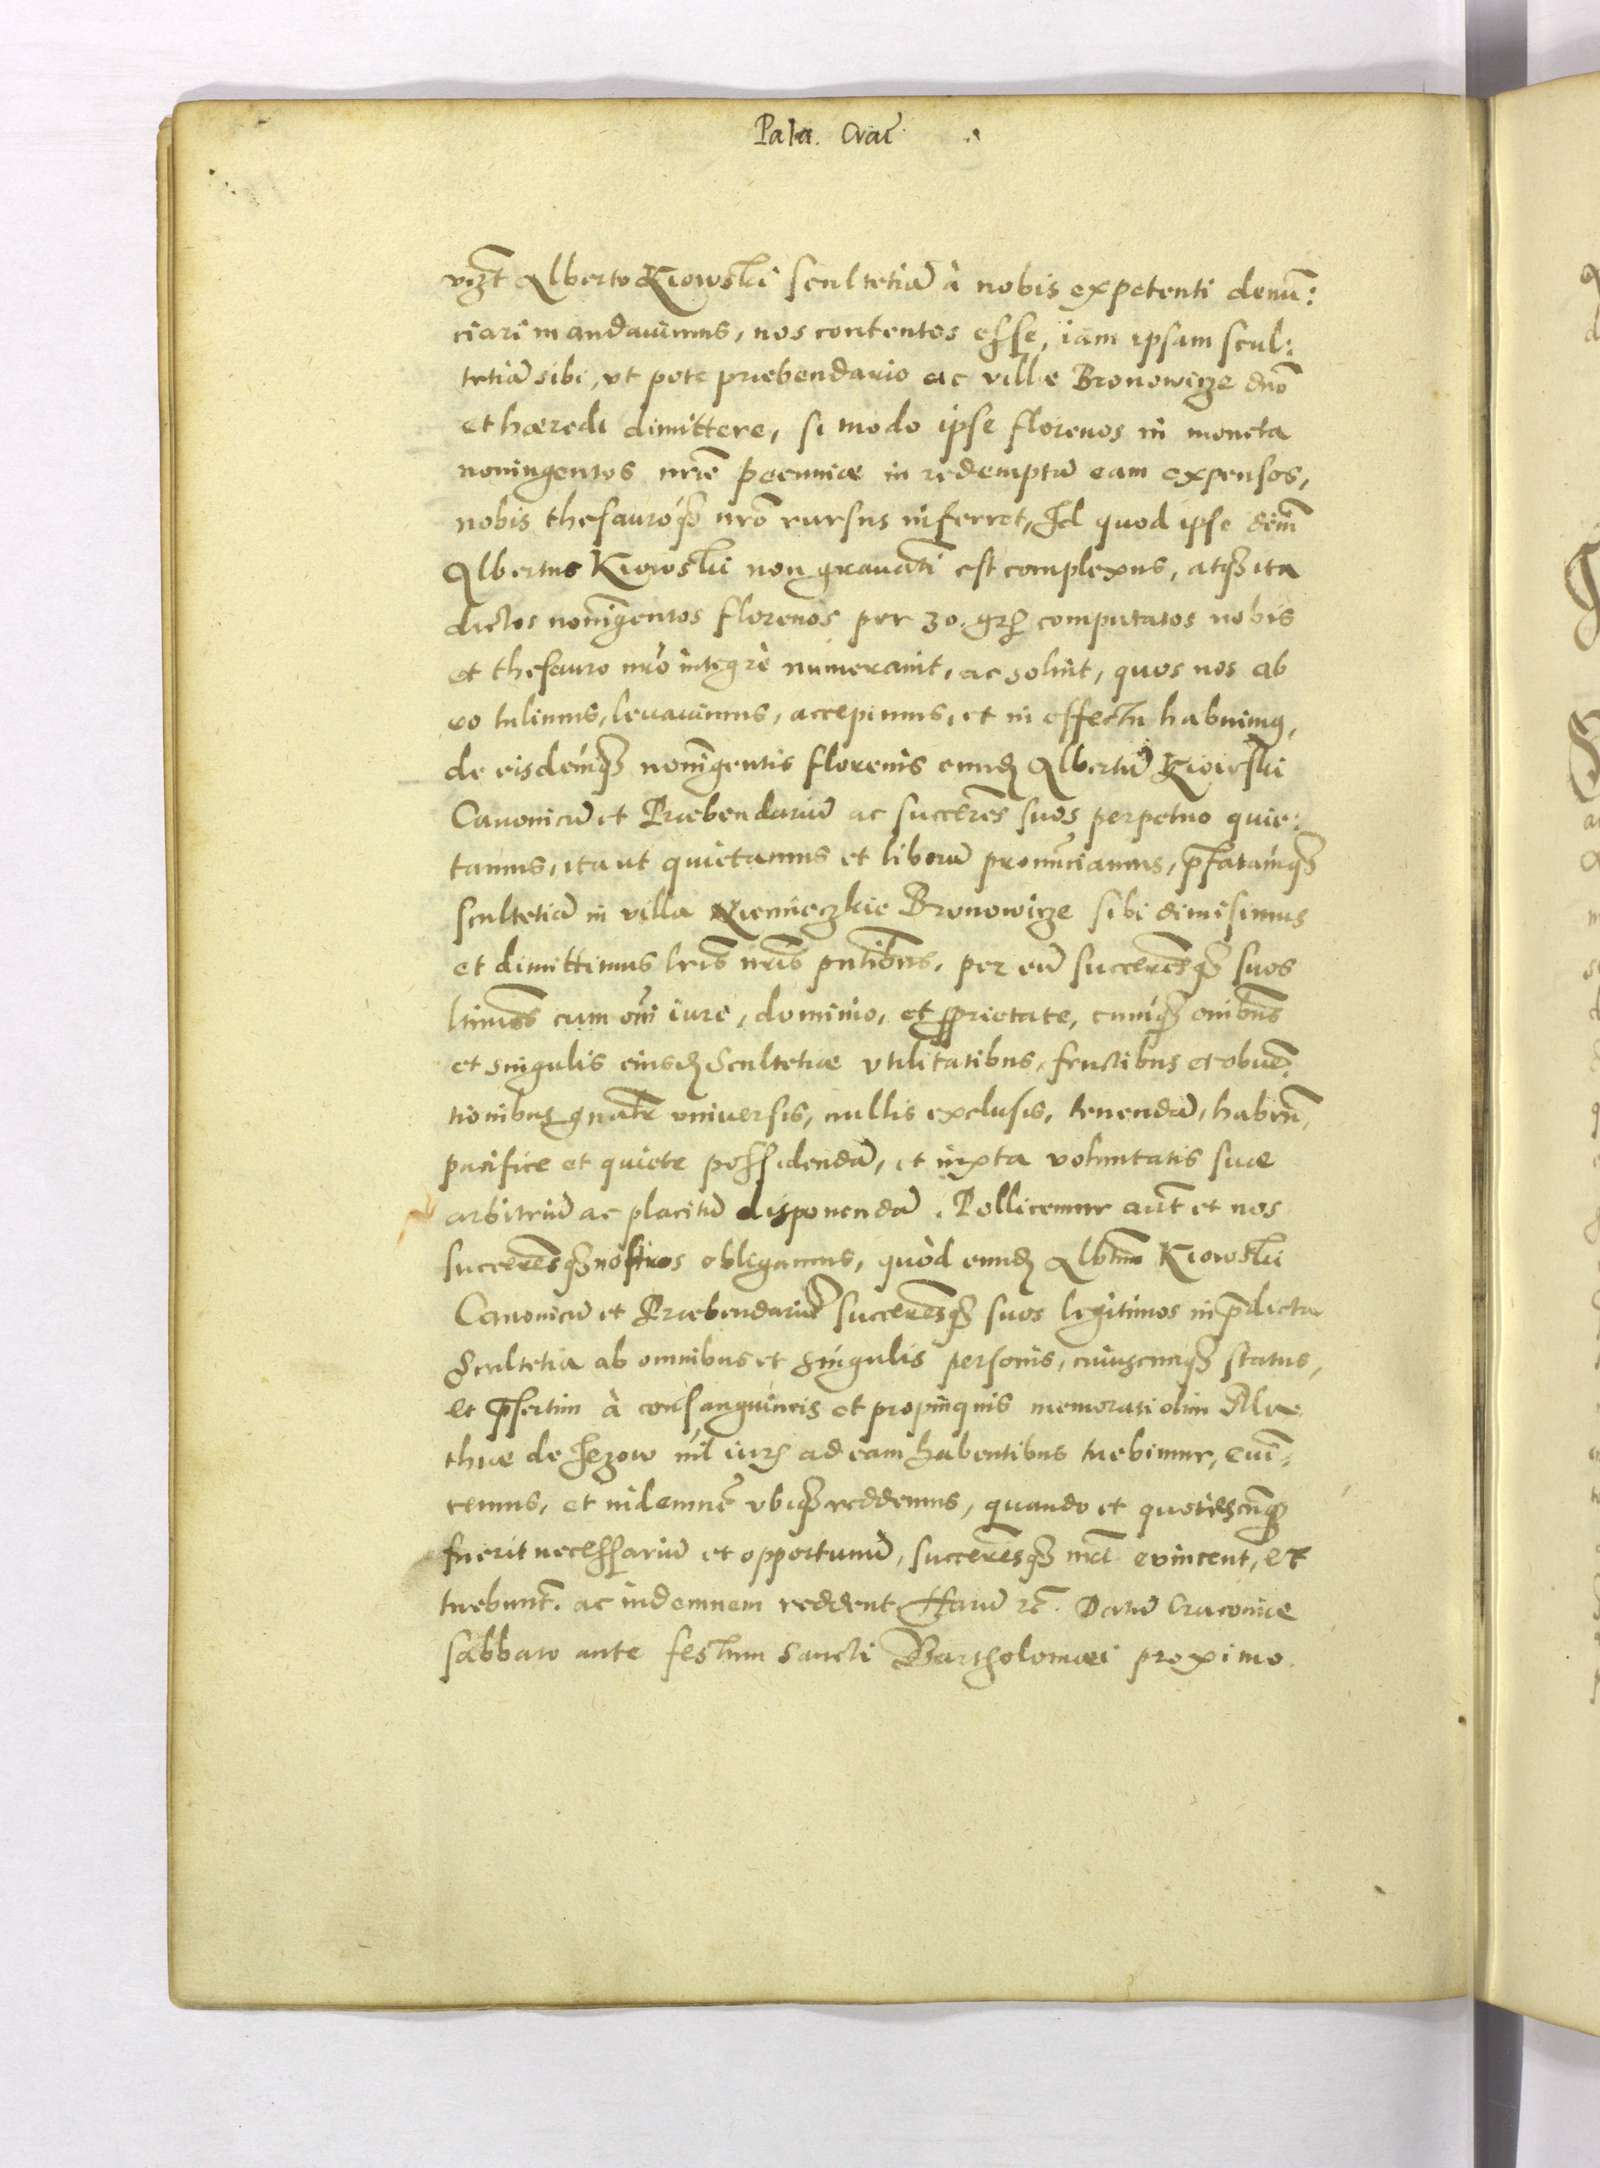 Pala. Crac̃.
vizt Alberto Kiowski scultetiã à nobis expetenti denũ:
ciari mandauimus, nos contentos esse, iam ipsam scul:
tetiã sibi, vt pote præbendario ac villæ Bronowicze dnõ
et hæredi dimittere, si modo ipse florenos in moneta
noningentos nrẽ pecuniæ in redemptã eam expensos,
nobis thesauroq́ʒ nrõ rursus inferret, Id quod ipse dem̃
Albertus Kiowski non grauatĩ est complexus, atqʒ ita
dictos nonĩgentos florenos per 30. grʒ computatos nobis
et thesauro nrõ integrè numerauit, ac soluit, quos nos ab
eo tulimus, leuauimus, accepimus, et in effectu habuimus,
de eisdemq́ʒ nonĩgentis florenis eundʒ Albertũ Kiowski
Canonicũ et Præbendariũ ac succeres̃ suos perpetuo quie:
tamus, ita ut quietamus et liberũ pronũciamus, p̃fatamq́ʒ
scultetiã in villa Niemieczkie Bronowicze sibi dimisimus
et dimittimus lrĩs nrĩs pñtibus, per eũ succeresq́ʒ suos
ltimos̃ cum oñi iure, dominio, et proprietate, cumq́ʒ oñibus
et singulis eiusdʒ Scultetiæ vtilitatibus, fructibus et obuẽ:
tionibus gñatr̃ vniuersis, nullis exclusis, tenendã, habeñ,
pacifice et quiete possidendã, et iuxta voluntatis suæ
arbitriũ ac placitũ disponendã. Pollicemur aũt et nos
succeresq́ʒ nostros obligamus, quòd eundʒ Albtum̃ Kiowski
Canonicũ et Præbendariũ succeresq́ʒ suos legitimos in p̃dicta
Scultetia ab omnibus et singulis personis, cuiuscunqʒ status,
et p̃sertim à consanguineis et propinquis memorati olim
thiæ de Jezow nil iurʒ ad eam habentibus tuebimur, eui:
cemus, et indemnẽ vbiqʒ reddemus, quando et quotiescũqʒ
fuerit necessariũ et opportunũ, succeresq́ʒ nrĩ euincent, et
tuebunt̃. ac indemnem reddent Harũ rc̃. Datũ Cracouiæ
sabbato ante festum Sancti Bartholomæi proximo.